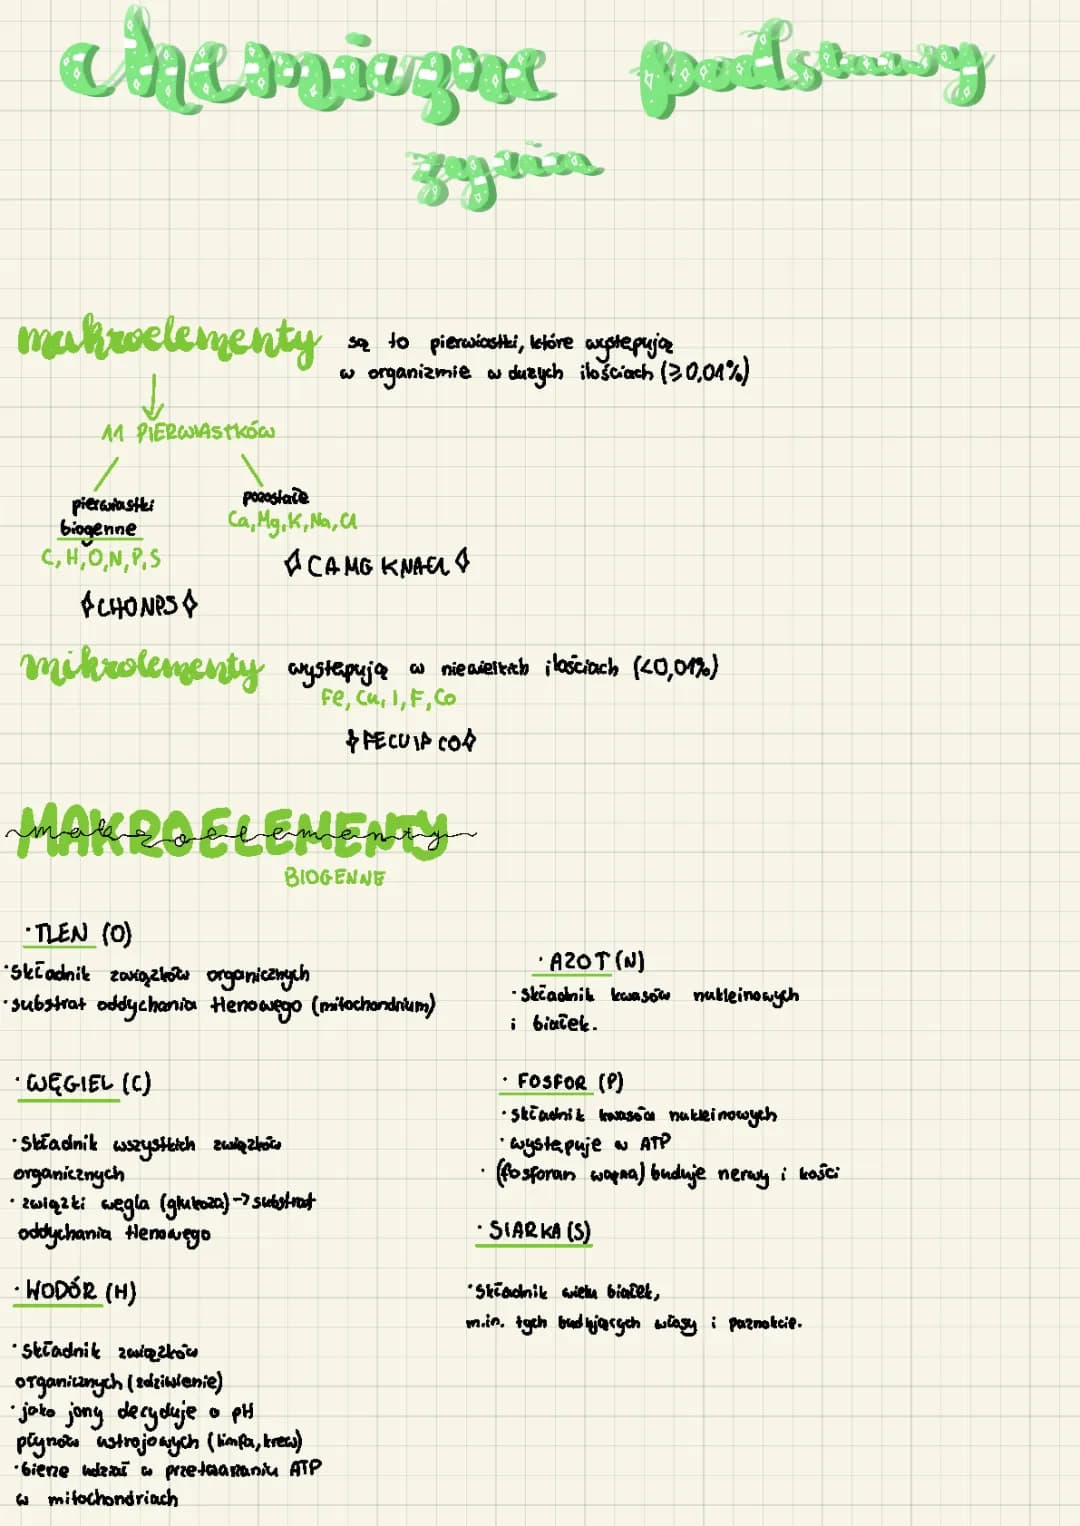 chemiczne podstawy
życia
makroelementy są to pierwiastki, które występują
w organizmie w dużych ilościach (≥0,01%)
11 PIERWIASTKÓW
pierwiastki
biogenne
C, H, O, N, P, S
◇CHONPS◇
pozostałe
Ca, Mg, K, Na, Cl
◇CAMG KNACL◇
mikrolementy występują w niewielkich ilościach (<0,01%)
Fe, Cu, I, F, Co
◇FECUIF CO◇
MAKROELEMENTY
makroelementy
BIOGENNE
·TLEN (O)
·składnik związków organicznych
·substrat oddychania tlenowego (mitochondrium)
·WĘGIEL (C)
·składnik wszystkich związków
organicznych
·związki węgla (glukoza)→substrat
oddychania tlenowego
·WODÓR (H)
·składnik związków
organicznych (zdziwienie)
·jako jony decyduje o pH
płynów ustrojowych (limfa, krew)
·bierze udział w przetwarzaniu ATP
w mitochondriach
·AZOT (N)
·składnik kwasów nukleinowych
i białek.
·FOSFOR (P)
·składnik kwasów nukleinowych
·występuje w ATP
·(fosforan wapna) buduje nerwy i kości
·SIARKA (S)
·składnik wielu białek,
m.in. tych budujących włosy i paznokcie.